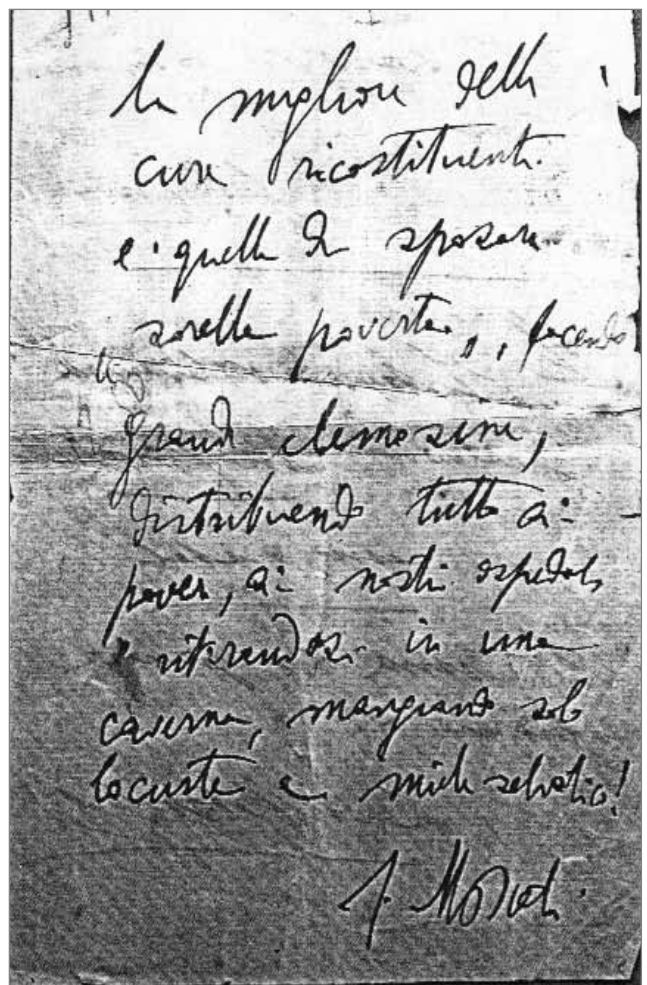 la migliore delle
cure ricostituenti
è quella di sposare
"sorella povertà", facendo
grandi elemosine,
distribuendo tutto ai
poveri, ai nostri ospedali
e ritirandosi in una
caverna, mangiando solo
locuste e miele selvatico!
G. Moscati